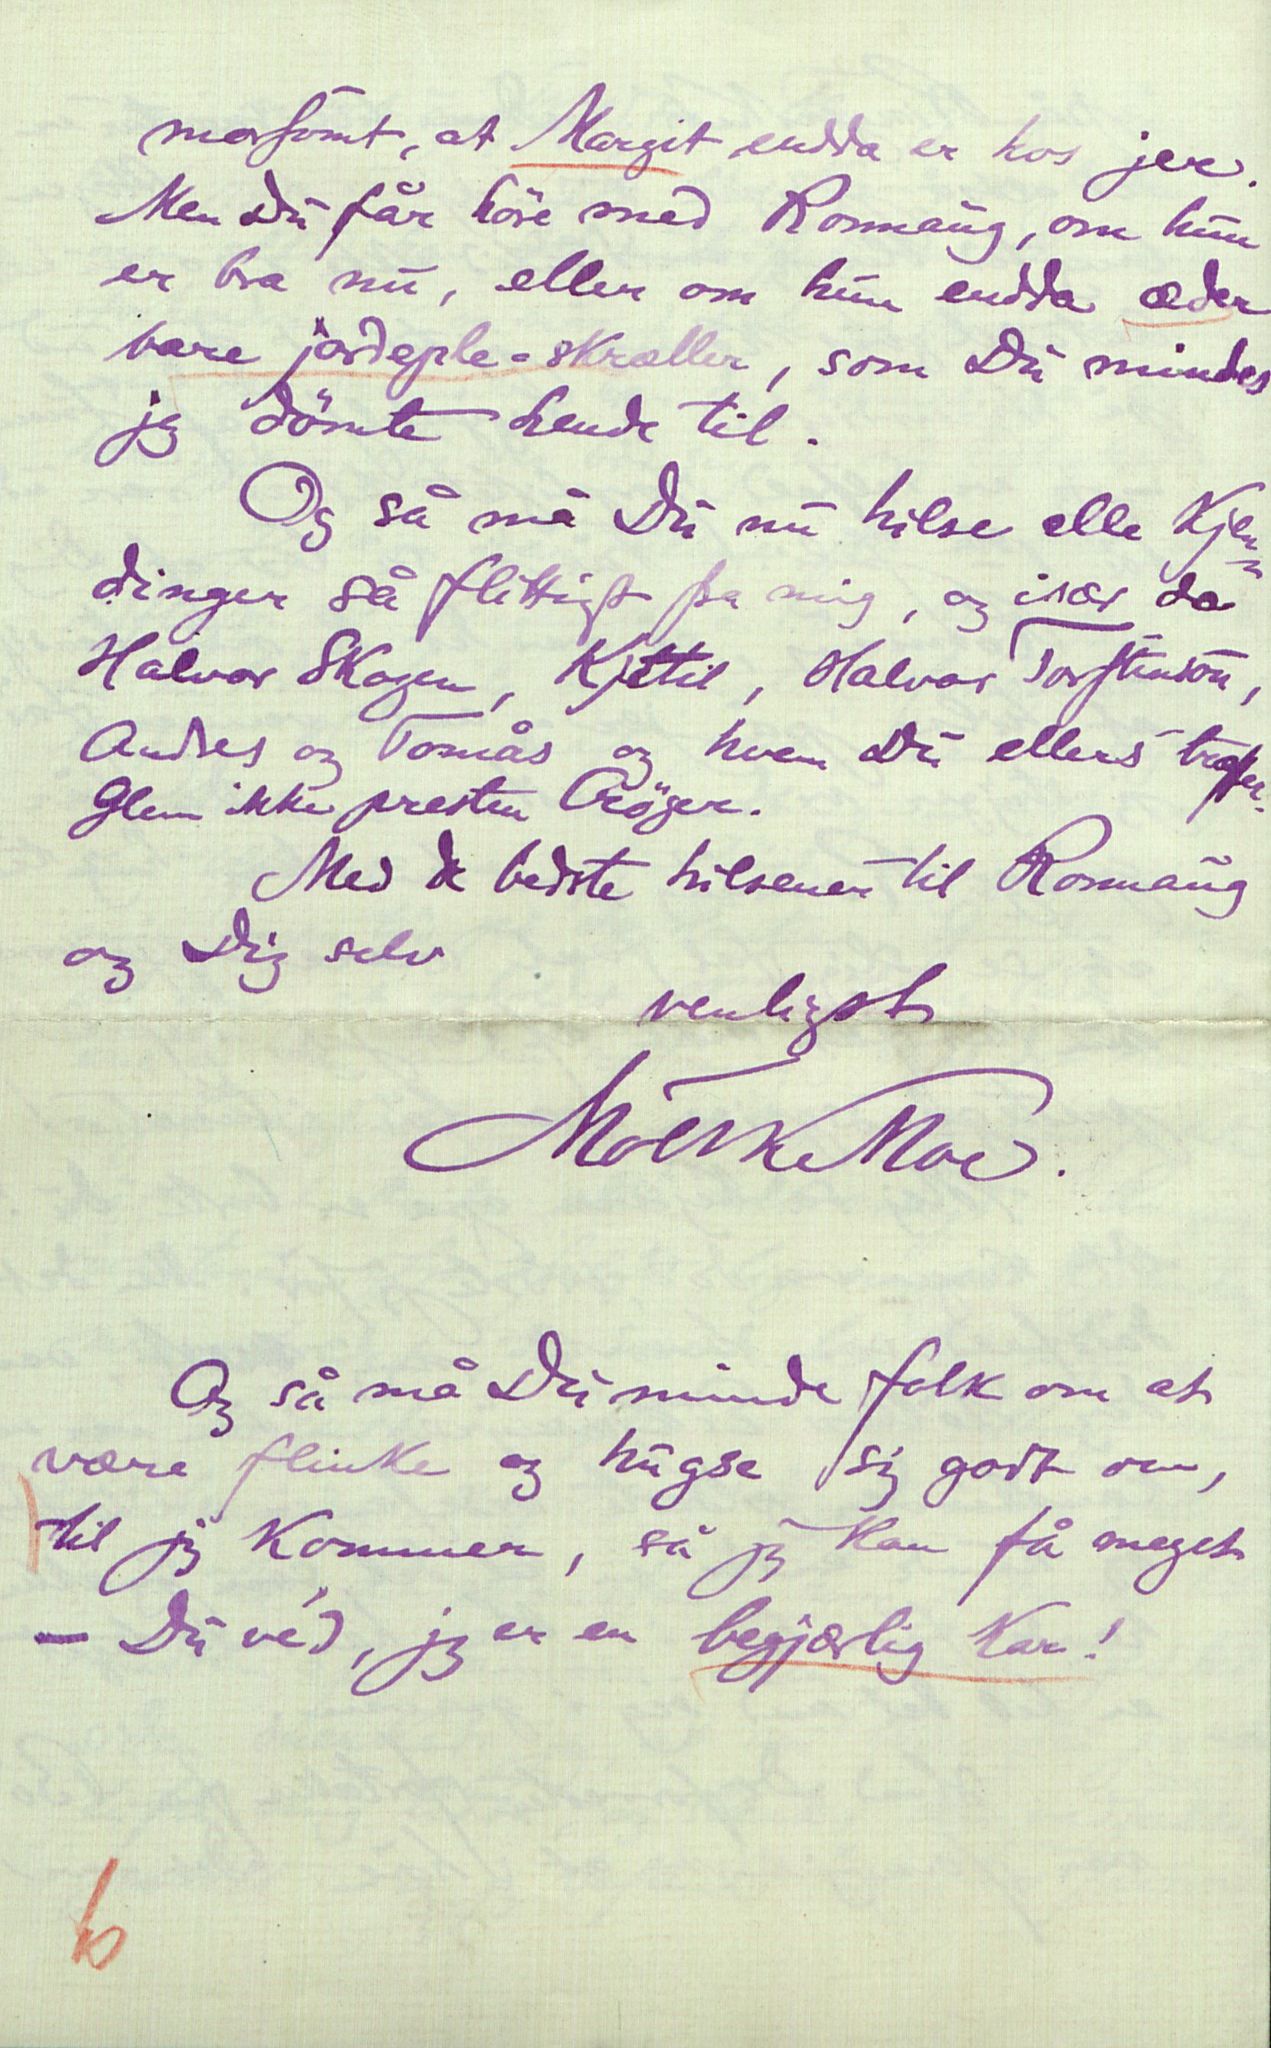 morsomt, at Margit endda er hos jer.
Men Du får höre med Ronnaug, om hun
er bra nu, eller om hun endda æder
bare jordeple-skræller, som Du mindes
jeg dömte hende til.
Og så må Du nu hilse alle Kjen-
dinger så flittigst fra mig, og især da
Halvor Skogen, Kjetil, Halvor Torstenson,
Andres og Tomås og hvem Du ellers træffer.
Glem ikke presten Cröger.
Med de bedste hilsener til Ronnaug
og Dig selv
venligst
Moltke Moe.
Og så må Du minde folk om at
være flinke og hugse sig godt om,
til jeg kommer, så jeg kan få meget
– Du véd, jeg er en begjærlig Kar!
6